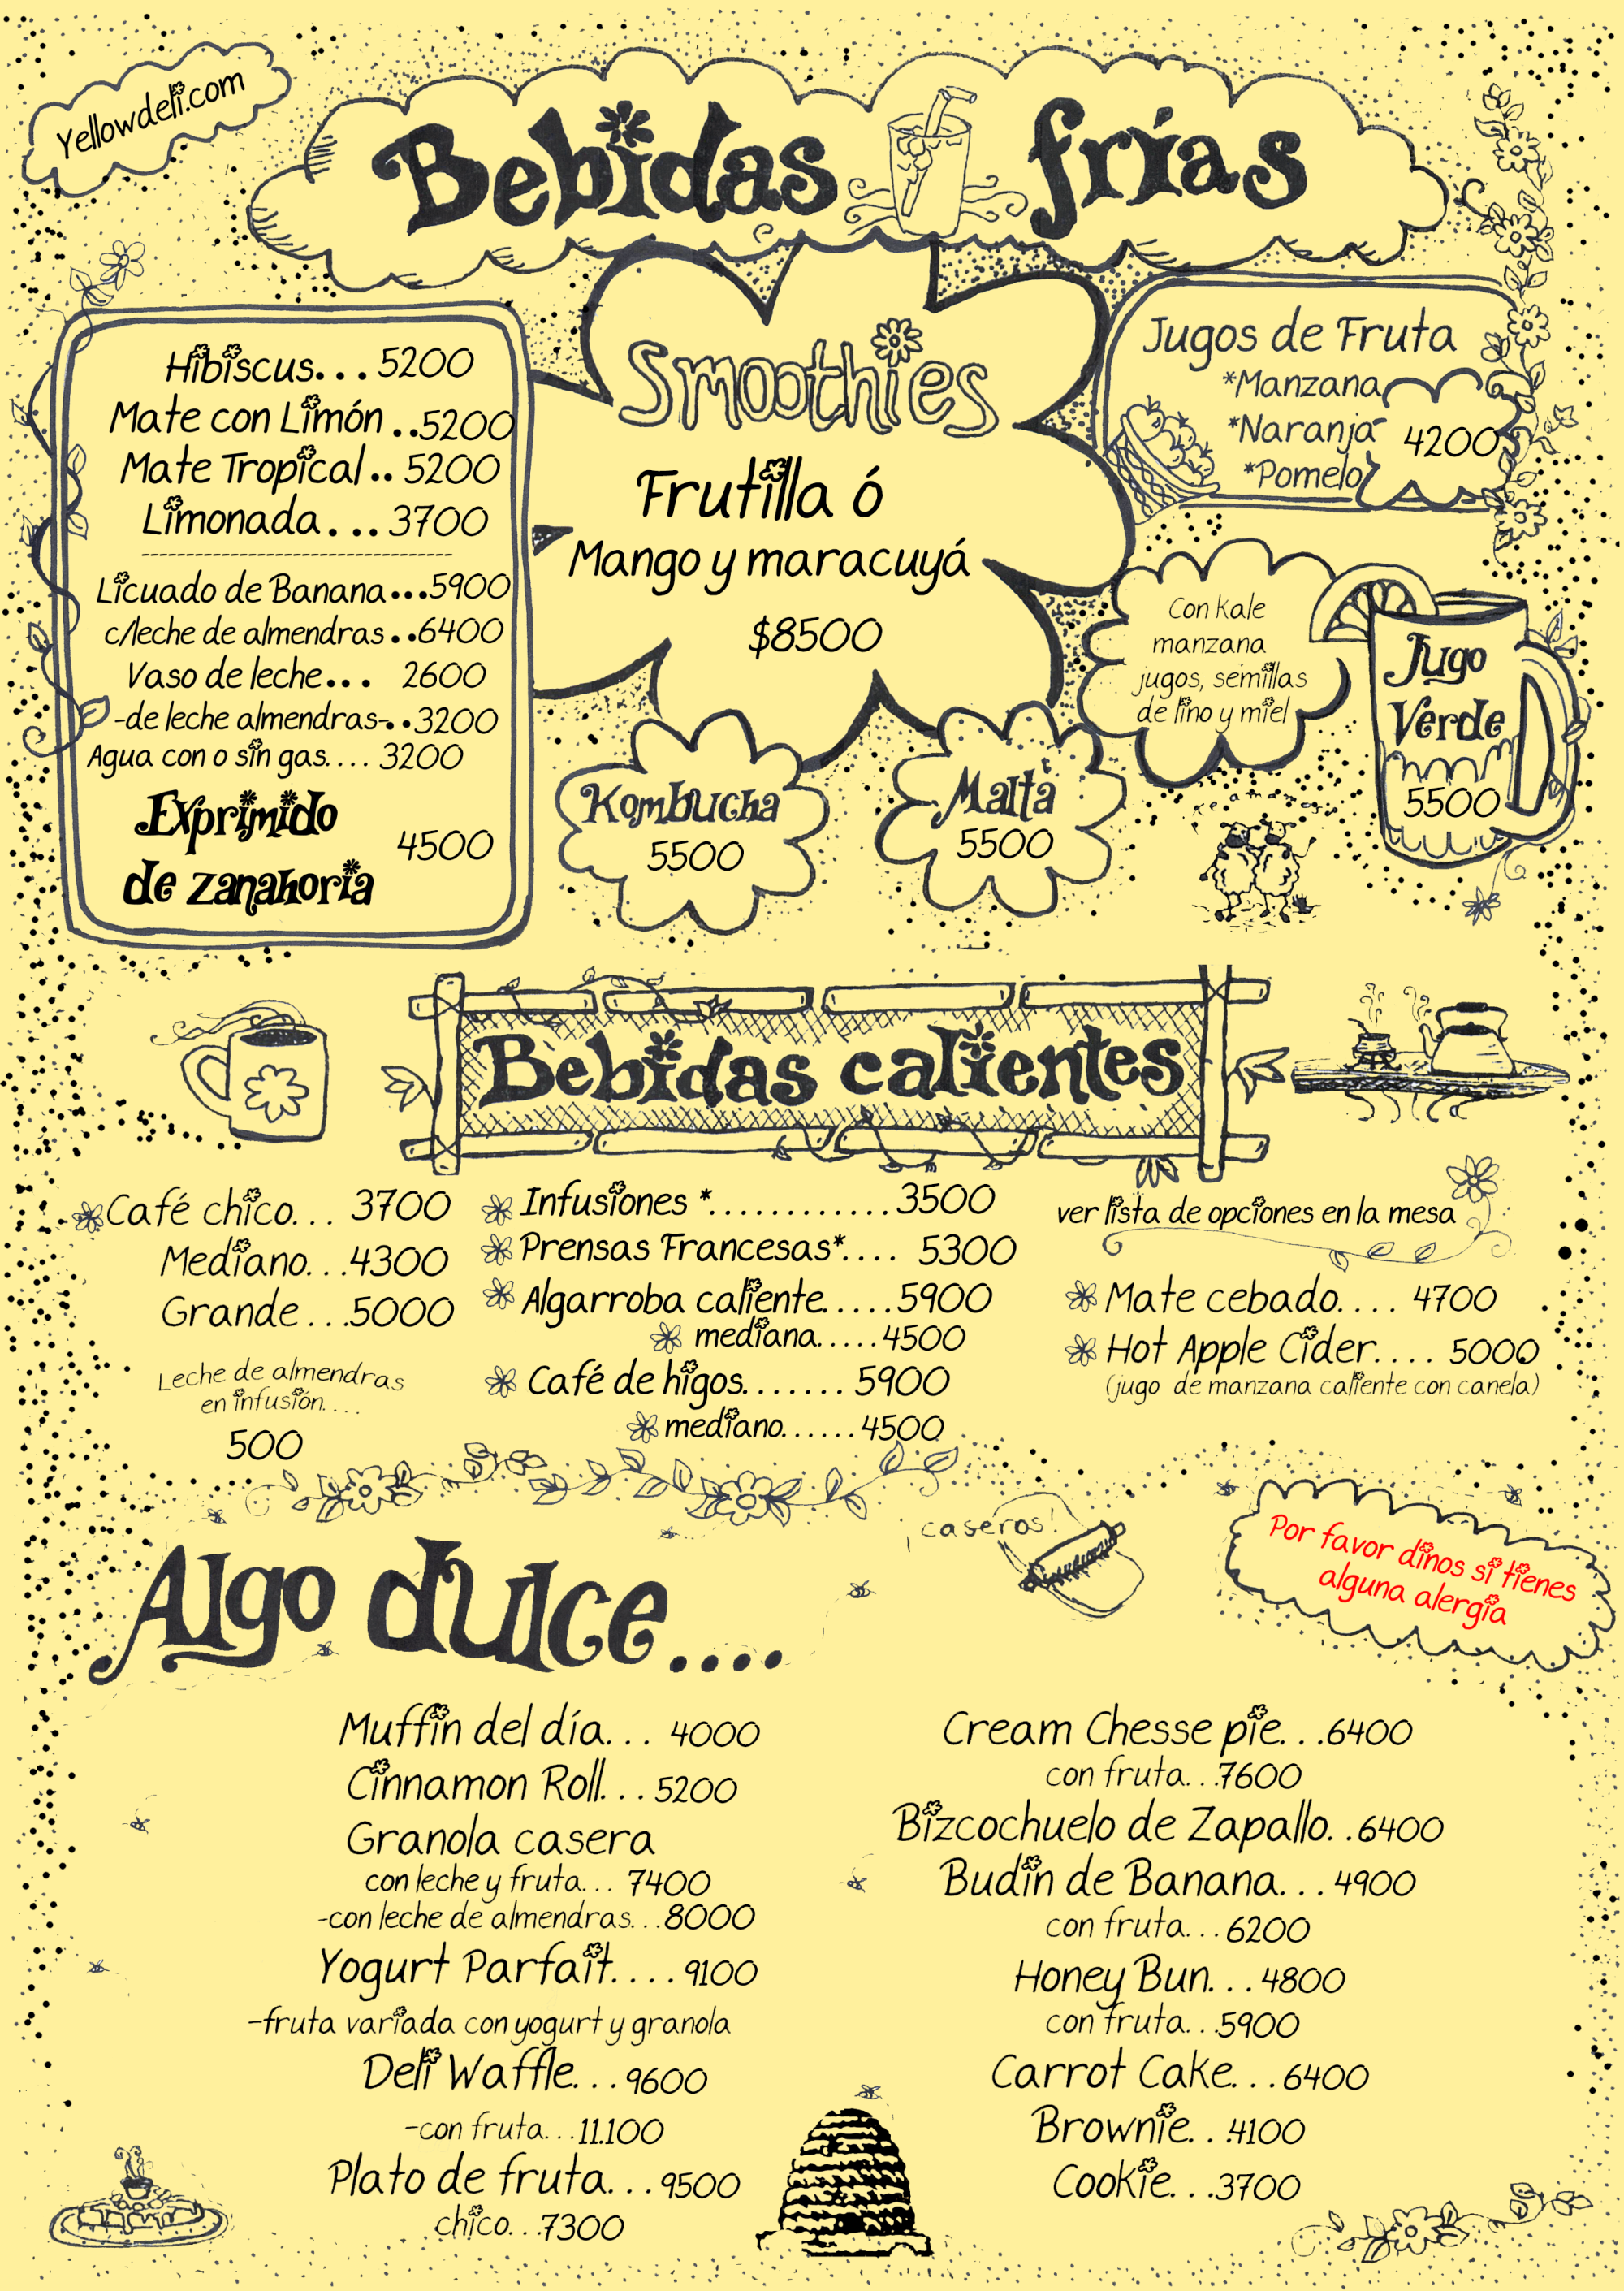 Yellowdeli.com
Bebidas frías
Hibiscus... 5200
Mate con Limón ..5200
Mate Tropical.. 5200
Limonada... 3700
-----------------------------------
Licuado de Banana...5900
c/leche de almendras..6400
Vaso de leche... 2600
-de leche almendras-..3200
Agua con o sin gas.... 3200
Exprimido
de zanahoria
4500
Smoothies
Frutilla ó
Mango y maracuyá
$8500
Jugos de Fruta
*Manzana
*Naranja
*Pomelo
4200
Con kale
manzana
jugos, semillas
de lino y miel
Jugo
Verde
5500
Kombucha
5500
Malta
5500
Bebidas calientes
Café chico... 3700
Mediano...4300
Grande...5000
Leche de almendras
en infusión....
500
Infusiones *............3500
Prensas Francesas*.... 5300
Algarroba caliente.....5900
mediana.....4500
Café de higos....... 5900
mediano......4500
ver lista de opciones en la mesa
Mate cebado.... 4700
Hot Apple Cider.... 5000
(jugo de manzana caliente con canela)
Algo dulce....
¡caseros!
Por favor dinos si tienes
alguna alergia
Muffin del día... 4000
Cinnamon Roll... 5200
Granola casera
con leche y fruta... 7400
-con leche de almendras...8000
Yogurt Parfait.... 9100
-fruta variada con yogurt y granola
Deli Waffle...9600
-con fruta...11.100
Plato de fruta...9500
chico...7300
Cream Chesse pie...6400
con fruta...7600
Bizcochuelo de Zapallo..6400
Budin de Banana...4900
con fruta...6200
Honey Bun...4800
con fruta...5900
Carrot Cake...6400
Brownie...4100
Cookie...3700